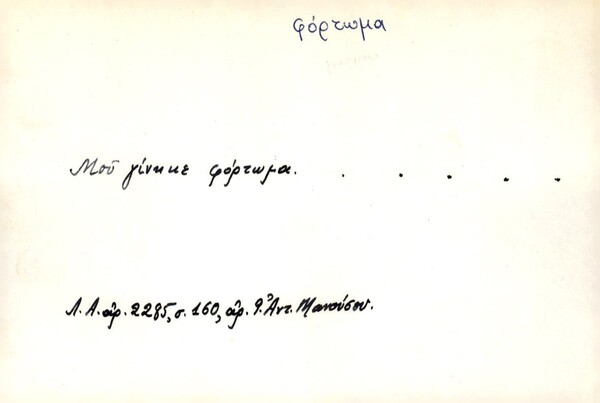 φόρτωμα
Μοῦ γίνηκε φόρτωμα. . . . . .
Λ.Α. ἀρ. 2285, σ. 160, ἀρ. 9. Ἀντ. Μανούσου.